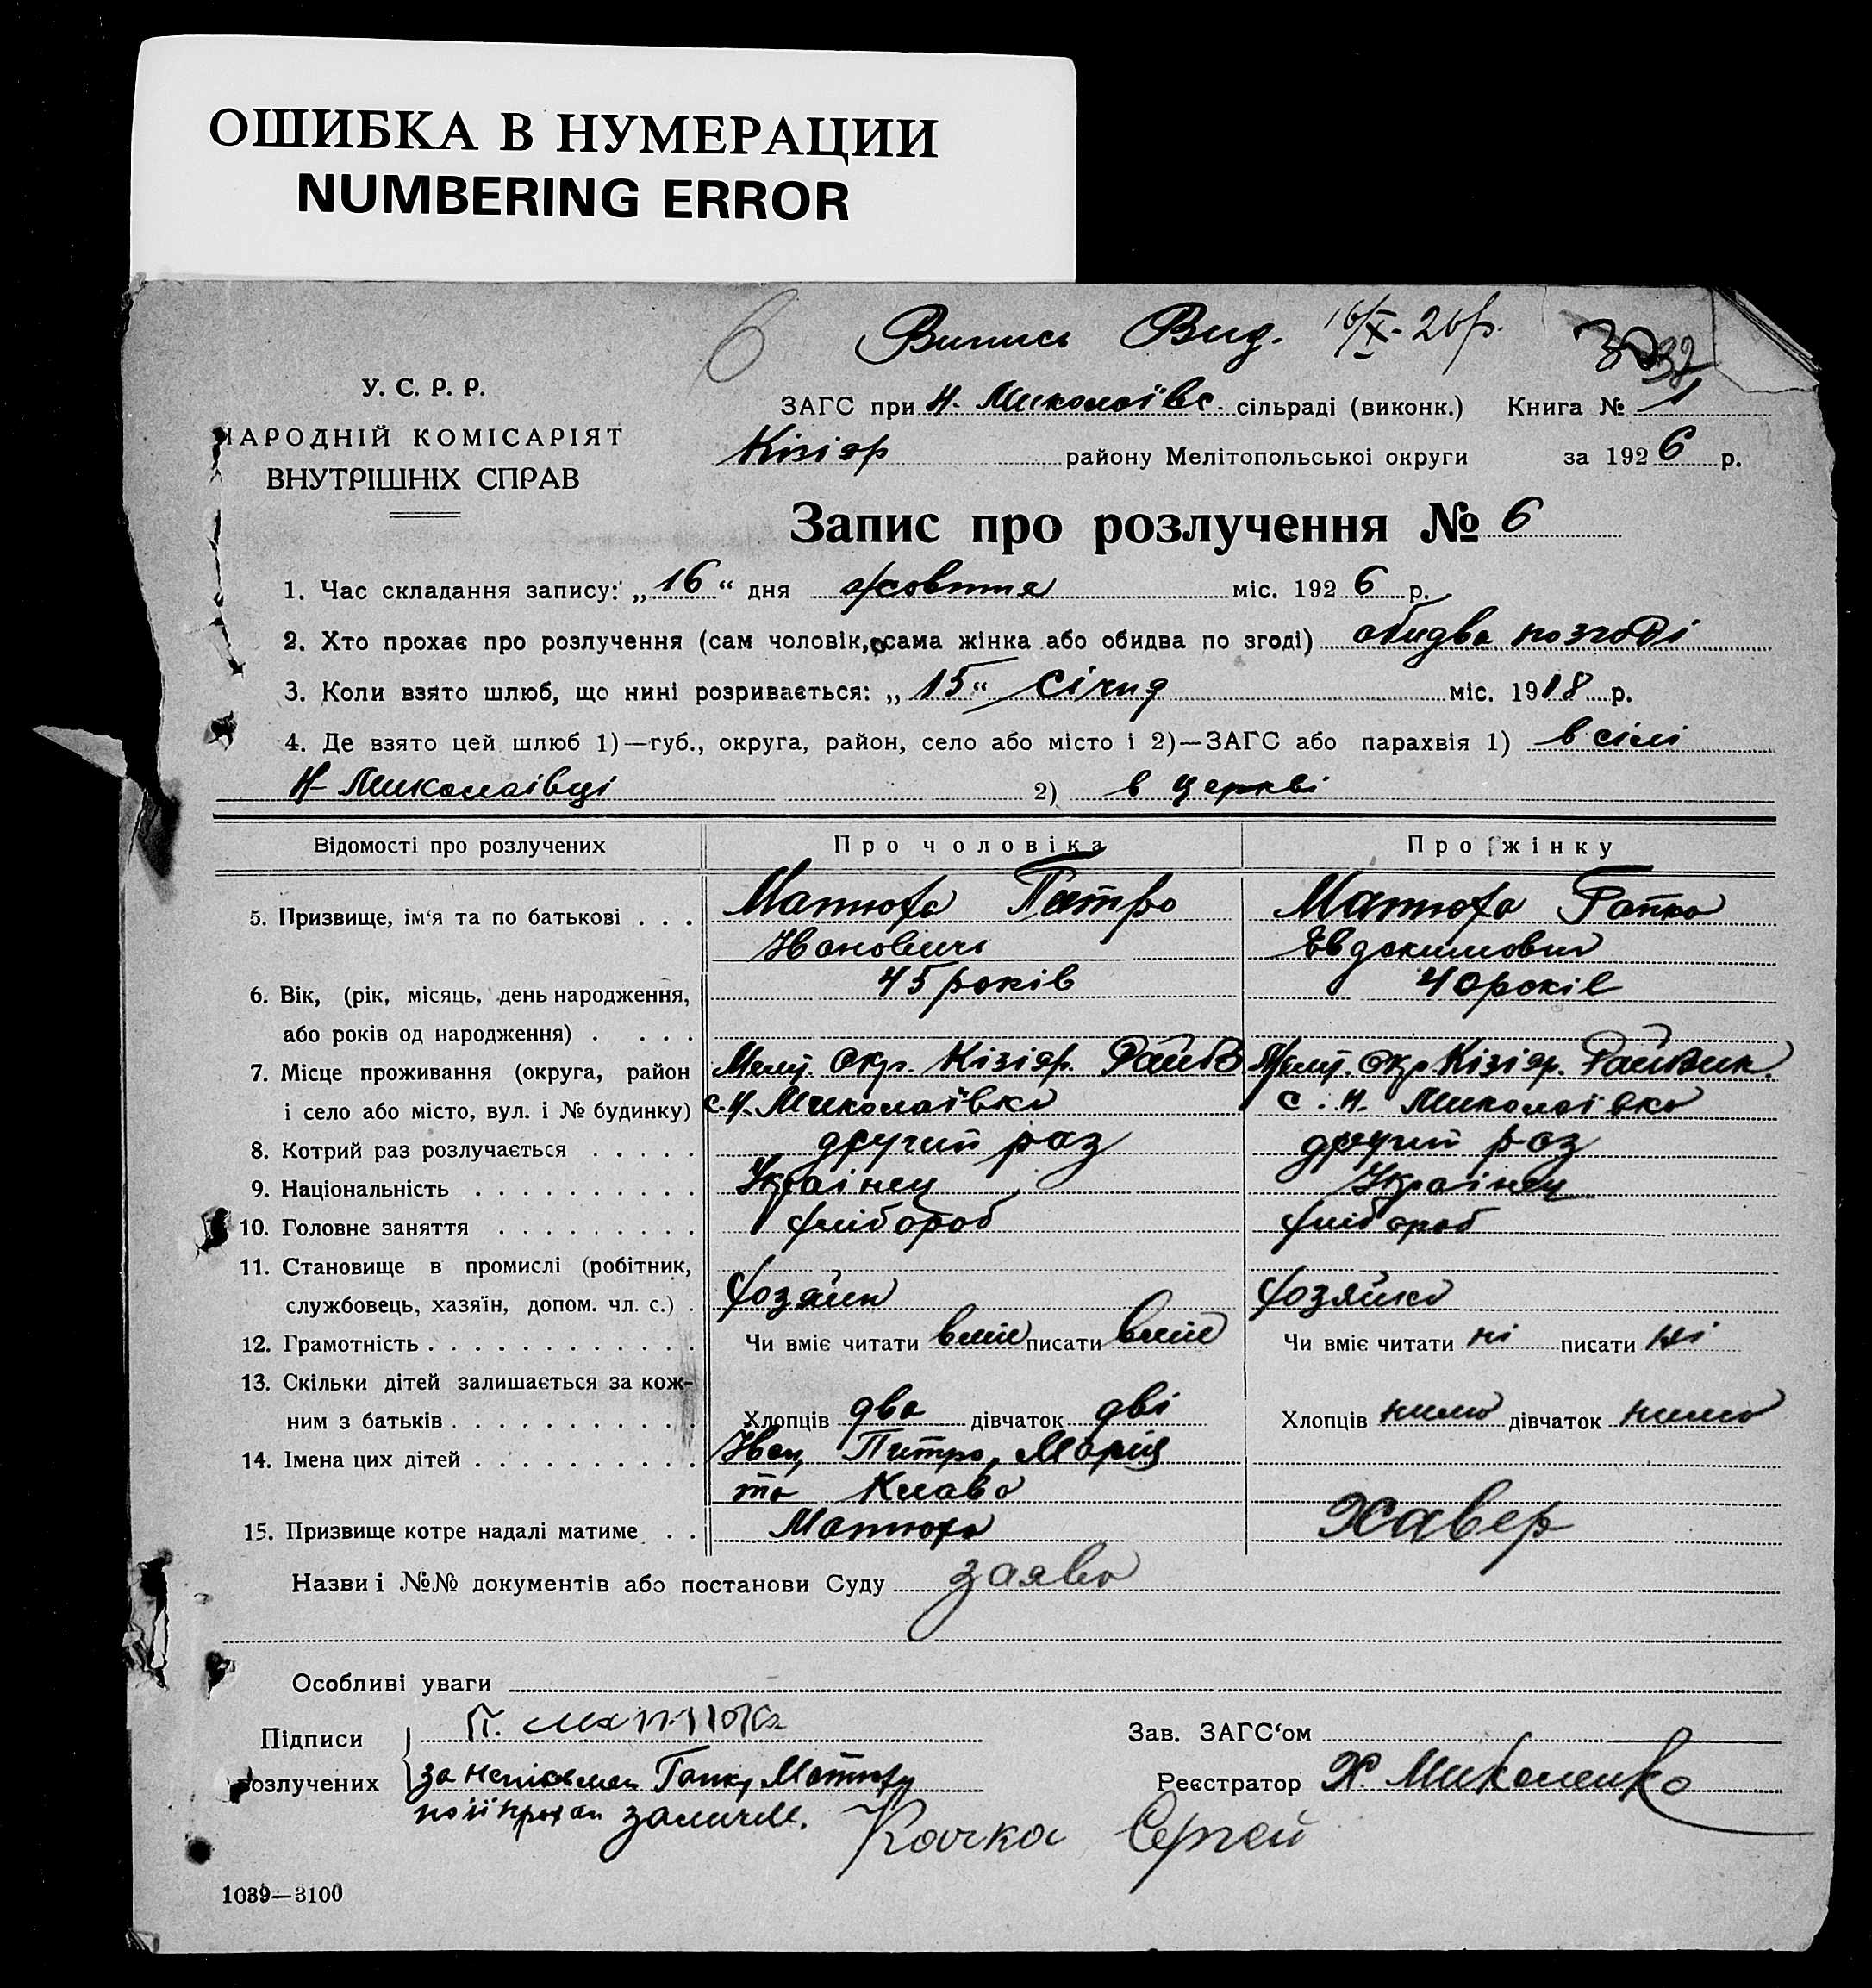 ОШИБКА В НУМЕРАЦИИ
NUMBERING ERROR
6 Випись Вид. 16/X-26р.
32
У. С. Р. Р.
НАРОДНІЙ КОМІСАРІЯТ
ВНУТРІШНІХ СПРАВ
ЗАГС при Н. Миколаївс. сільраді (виконк.) Книга № 1
Кізіяр району Мелітопольськоі округи за 1926 р.
Запис про розлучення № 6
1. Час складання запису: „16“ дня жовтня міс. 1926 р.
2. Хто прохає про розлучення (сам чоловік, сама жінка або обидва по згоді) обидва по згоді
3. Коли взято шлюб, що нині розривається: „15“ січня міс. 1918 р.
4. Де взято цей шлюб 1)—губ., округа, район, село або місто і 2)—ЗАГС або парахвія 1) в сілі
Н-Миколаівці 2) в церкві
Відомості про розлучених Про чоловіка Про жінку
5. Призвище, ім‘я та по батькові . . . Матюха Питро Матюха Гапка
Ивановичь Евдокимовна
6. Вік, (рік, місяць, день народження, 45 років 40 років
або років од народження) . . . .
7. Місце проживання (округа, район Мелит. Окр. Кізіяр. РайВ Мелит. Окр. Кізіяр. РайВик.
і село або місто, вул. і № будинку) с. Н. Миколаївка с. Н. Миколаївка
8. Котрий раз розлучається . . . . . другий раз другий раз
9. Національність . . . . . . . . . . Украінец Украінец
10. Головне заняття . . . . . . . . . хлібороб хлібороб
11. Становище в промислі (робітник,
службовець, хазяїн, допом. чл. с.) . хозяин хозяйка
12. Грамотність . . . . . . . . . . . . Чи вміє читати вміє писати вміє Чи вміє читати ні писати ні
13. Скільки дітей залишається за кож-
ним з батьків . . . . . . . . . . . Хлопців два дівчаток дві Хлопців нима дівчаток нима
14. Імена цих дітей . . . . . . . . . . Иван, Питро, Мария
та Клава
15. Призвище котре надалі матиме . . Матюха Хавер
Назви і №№ документів або постанови Суду заява
Особливі уваги
Підписи П. Матюха Зав. ЗАГС‘ом
розлучених за неписьмен Гапку Матюху Реєстратор Х. Миколенко
по іі прохан
Качка Сергей
1039—3100